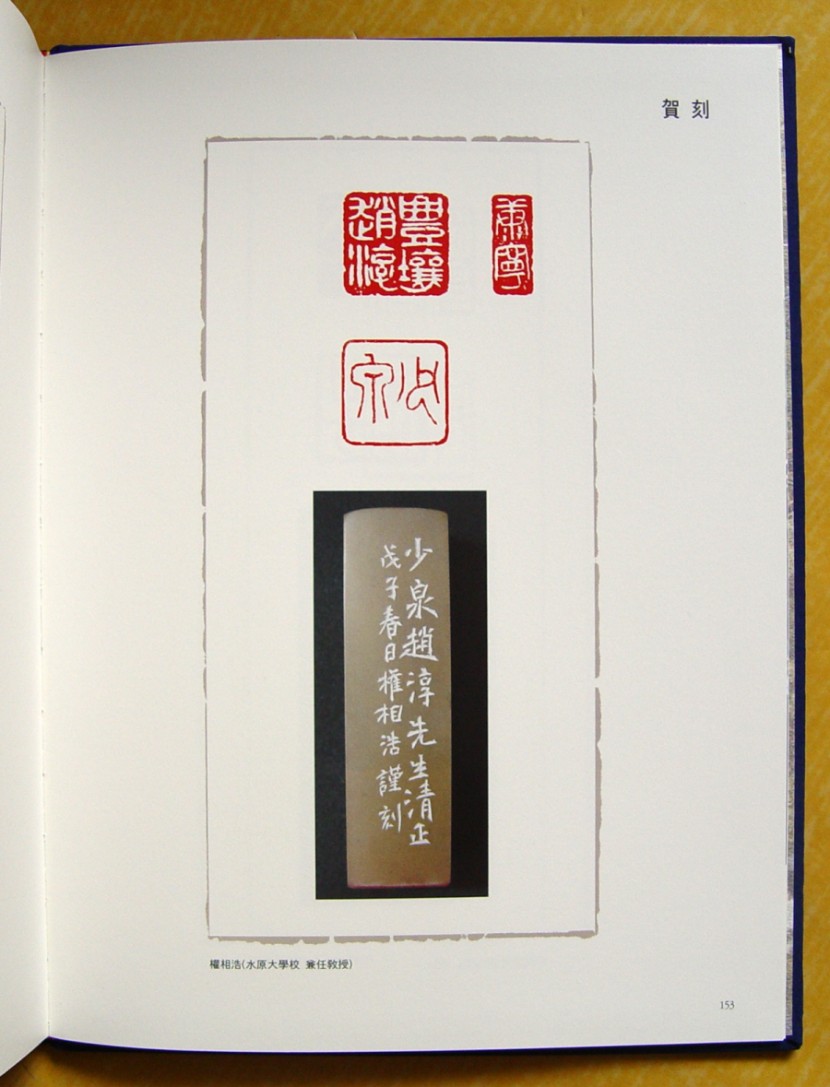 賀刻
康寧
豐壤
趙淳
少泉
少泉趙淳先生清正
戊子春日權相浩謹刻
權相浩(水原大學校 兼任敎授)
153